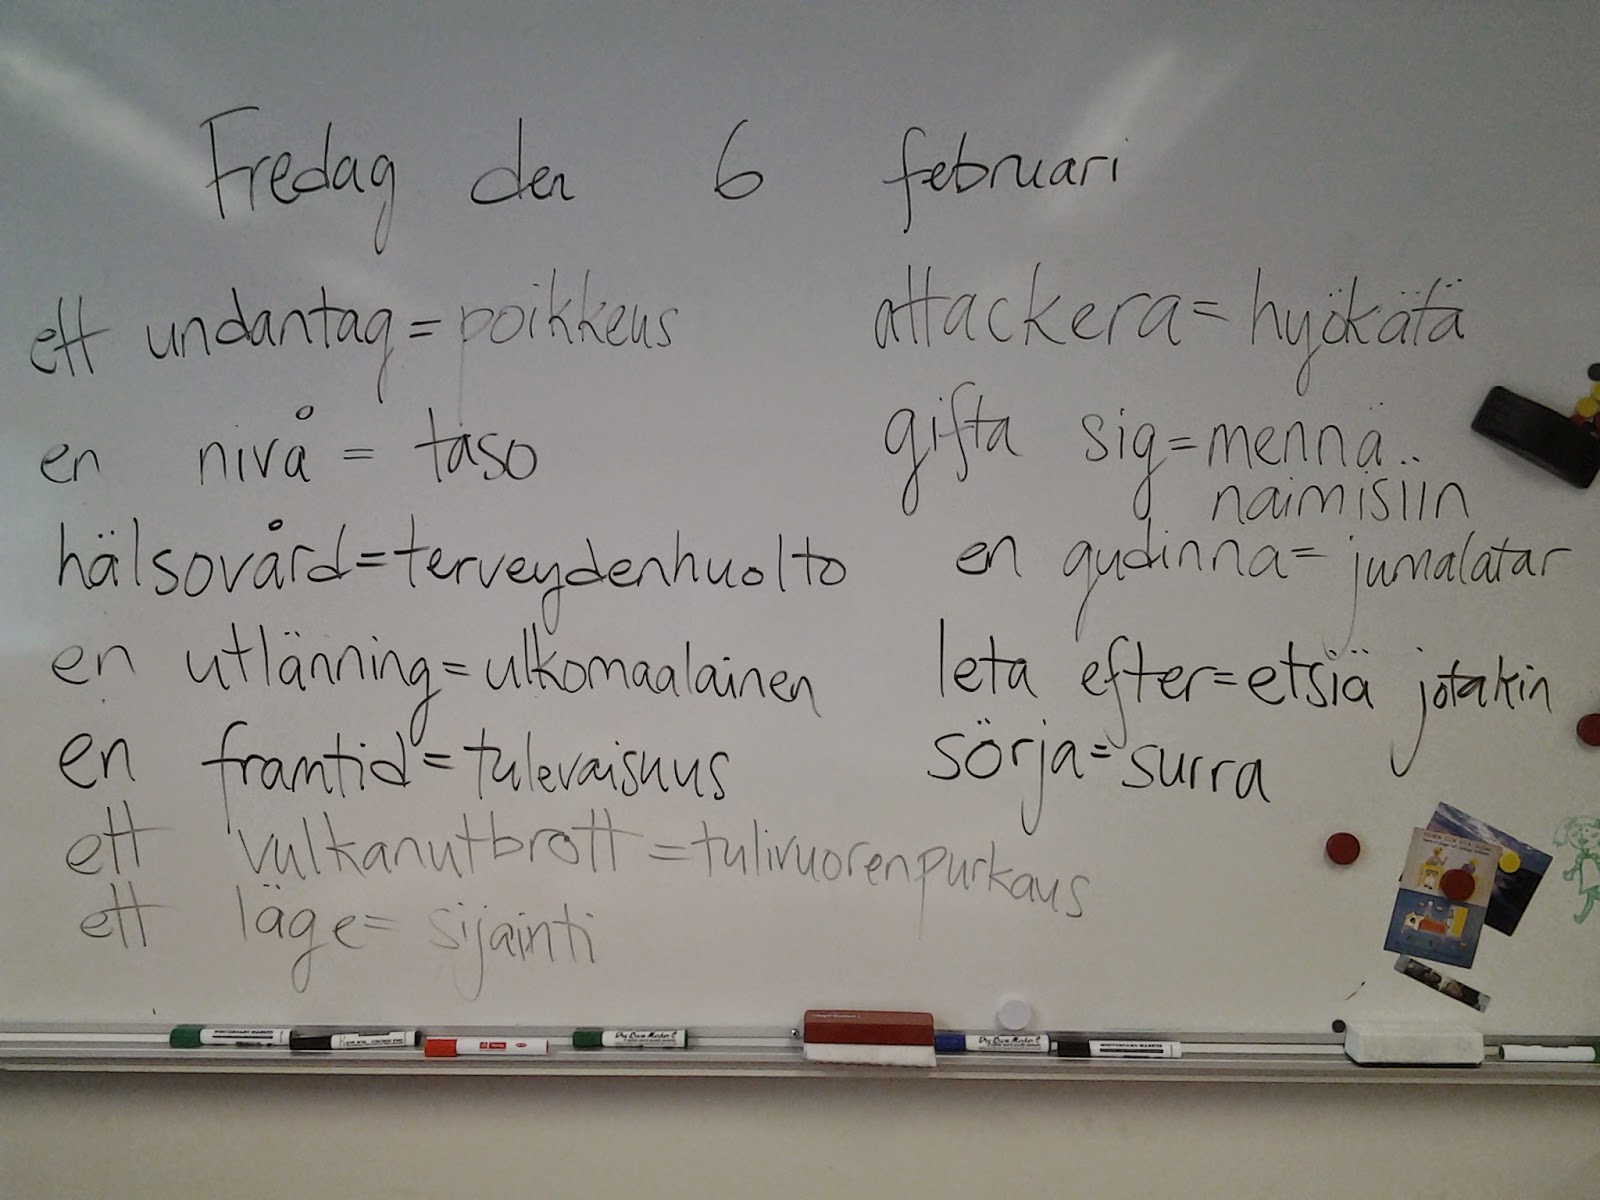 Fredag den 6 februari
ett undantag = poikkeus
en nivå = taso
hälsovård = terveydenhuolto
en utlänning = ulkomaalainen
en framtid = tulevaisuus
ett vulkanutbrott = tulivuorenpurkaus
ett läge = sijainti
attackera = hyökätä
gifta sig = mennä
naimisiin
en gudinna = jumalatar
leta efter = etsiä jotakin
sörja = surra